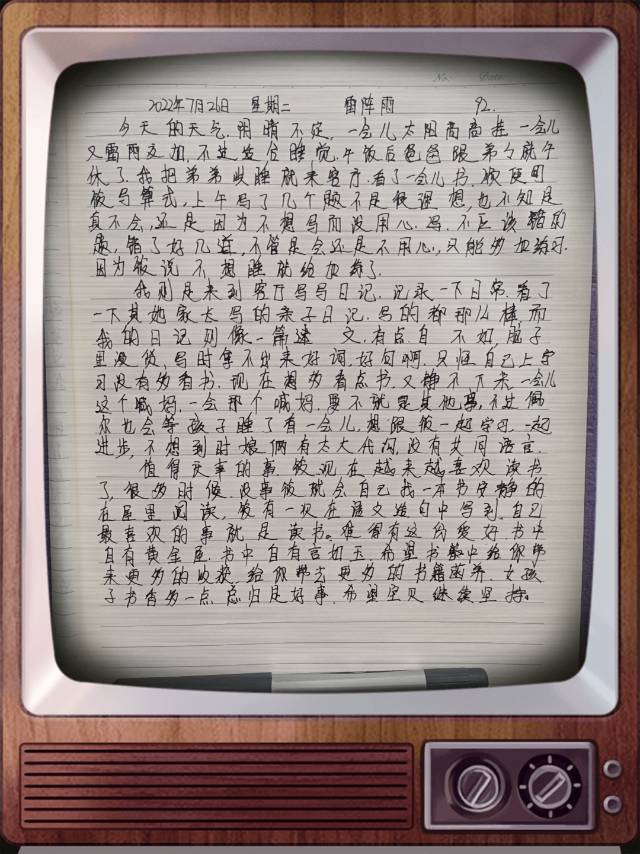 No:    Date:
2022年7月26日 星期二 雷阵雨 92.
今天的天气,阴晴不定,一会儿太阳高高挂,一会儿
又雷雨交加,不过适合睡觉,午饭后爸爸跟弟弟就午
休了,我把弟弟收睡就来客厅,看了一会儿书,
被写算式,上午写了几个题不是很理想,也不知是
真不会,还是因为不想写而没用心写,不应该错的
题,错了好几道,不管是会还是不用心,只能多加练习.
因为 说不想睡就给加练了.
我则是来到客厅写写日记,记录一下日常,看了
一下其她家长写的亲子日记,写的都那么棒,而
我的日记则像一篇迷 文,有点自 不如,脑子
里没货,写时拿不出来好词,好句啊,只怪自己上学
时没有多看书,现在想多看点书,又静不下来,一会儿
这个喊妈,一会那个喊妈,要不就是其他事,不过偶
尔也会等孩子睡了看一会儿,想跟 一起学习,一起
进步,不想到时娘俩有太大代沟,没有共同语言.
值得庆幸的事, 现在越来越喜欢读书
了,很多时候,没事 就会自己找一本书安静的
在屋里阅读, 有一次在语文造句中写到,自己
最喜欢的事就是读书。难得有这份爱好,书中
自有黄金屋,书中自有言如玉,希望书 中给你带
来更多的收获,给你带去更多的书籍滋养,女孩
子书看多一点,总归是好事,希望宝贝继续坚持。